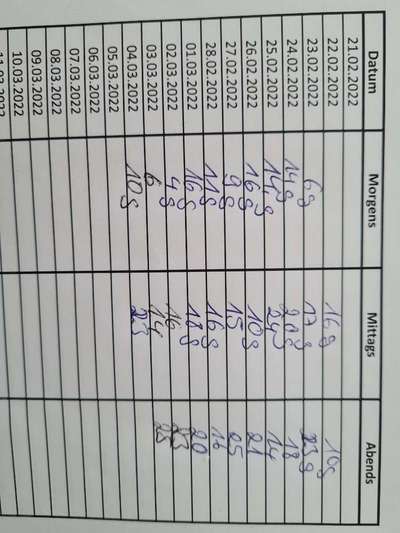 Datum Morgens Mittags Abends
21.02.2022
22.02.2022 16g 10g
23.02.2022 6g 17g 23g
24.02.2022 14g 20g 18
25.02.2022 14g 24g 14
26.02.2022 16g 10g 21
27.02.2022 9g 15 25
28.02.2022 11g 16g
01.03.2022 16g 18g 20
02.03.2022 4g 16
03.03.2022 6 14
04.03.2022 10g 23
05.03.2022
06.03.2022
07.03.2022
08.03.2022
09.03.2022
10.03.2022